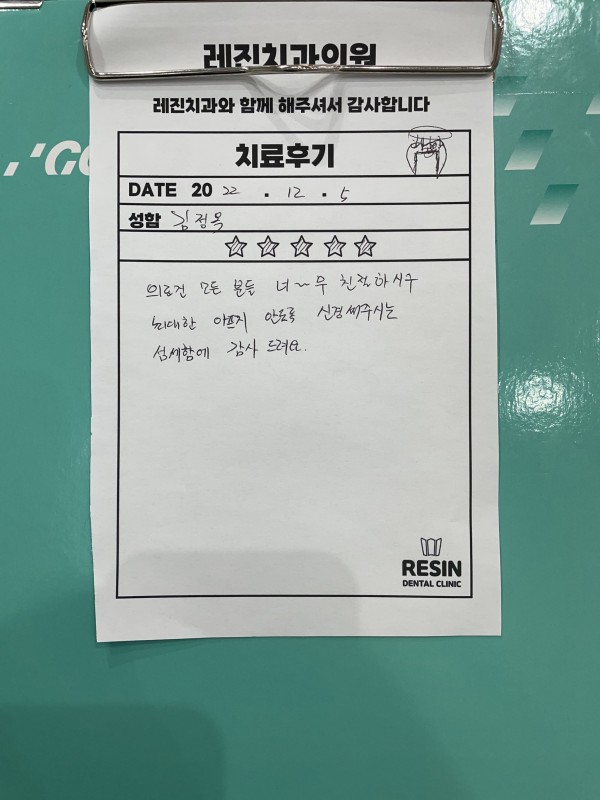 레진치과의원
레진치과와 함께 해주셔서 감사합니다
치료후기
DATE 2022 . 12 . 5
성함 김정옥
의료진 모든 분들 너~무 친절하시구
최대한 아프지 안도록 신경써주시는
섬세함에 감사 드려요.
RESIN
DENTAL CLINIC